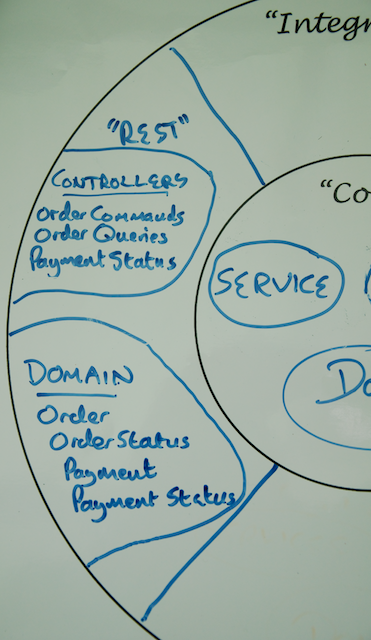 "Integr
"REST"
CONTROLLERS
Order Commands
Order Queries
Payment Status
"Co
SERVICE
Do
DOMAIN
Order
Order Status
Payment
Payment Status